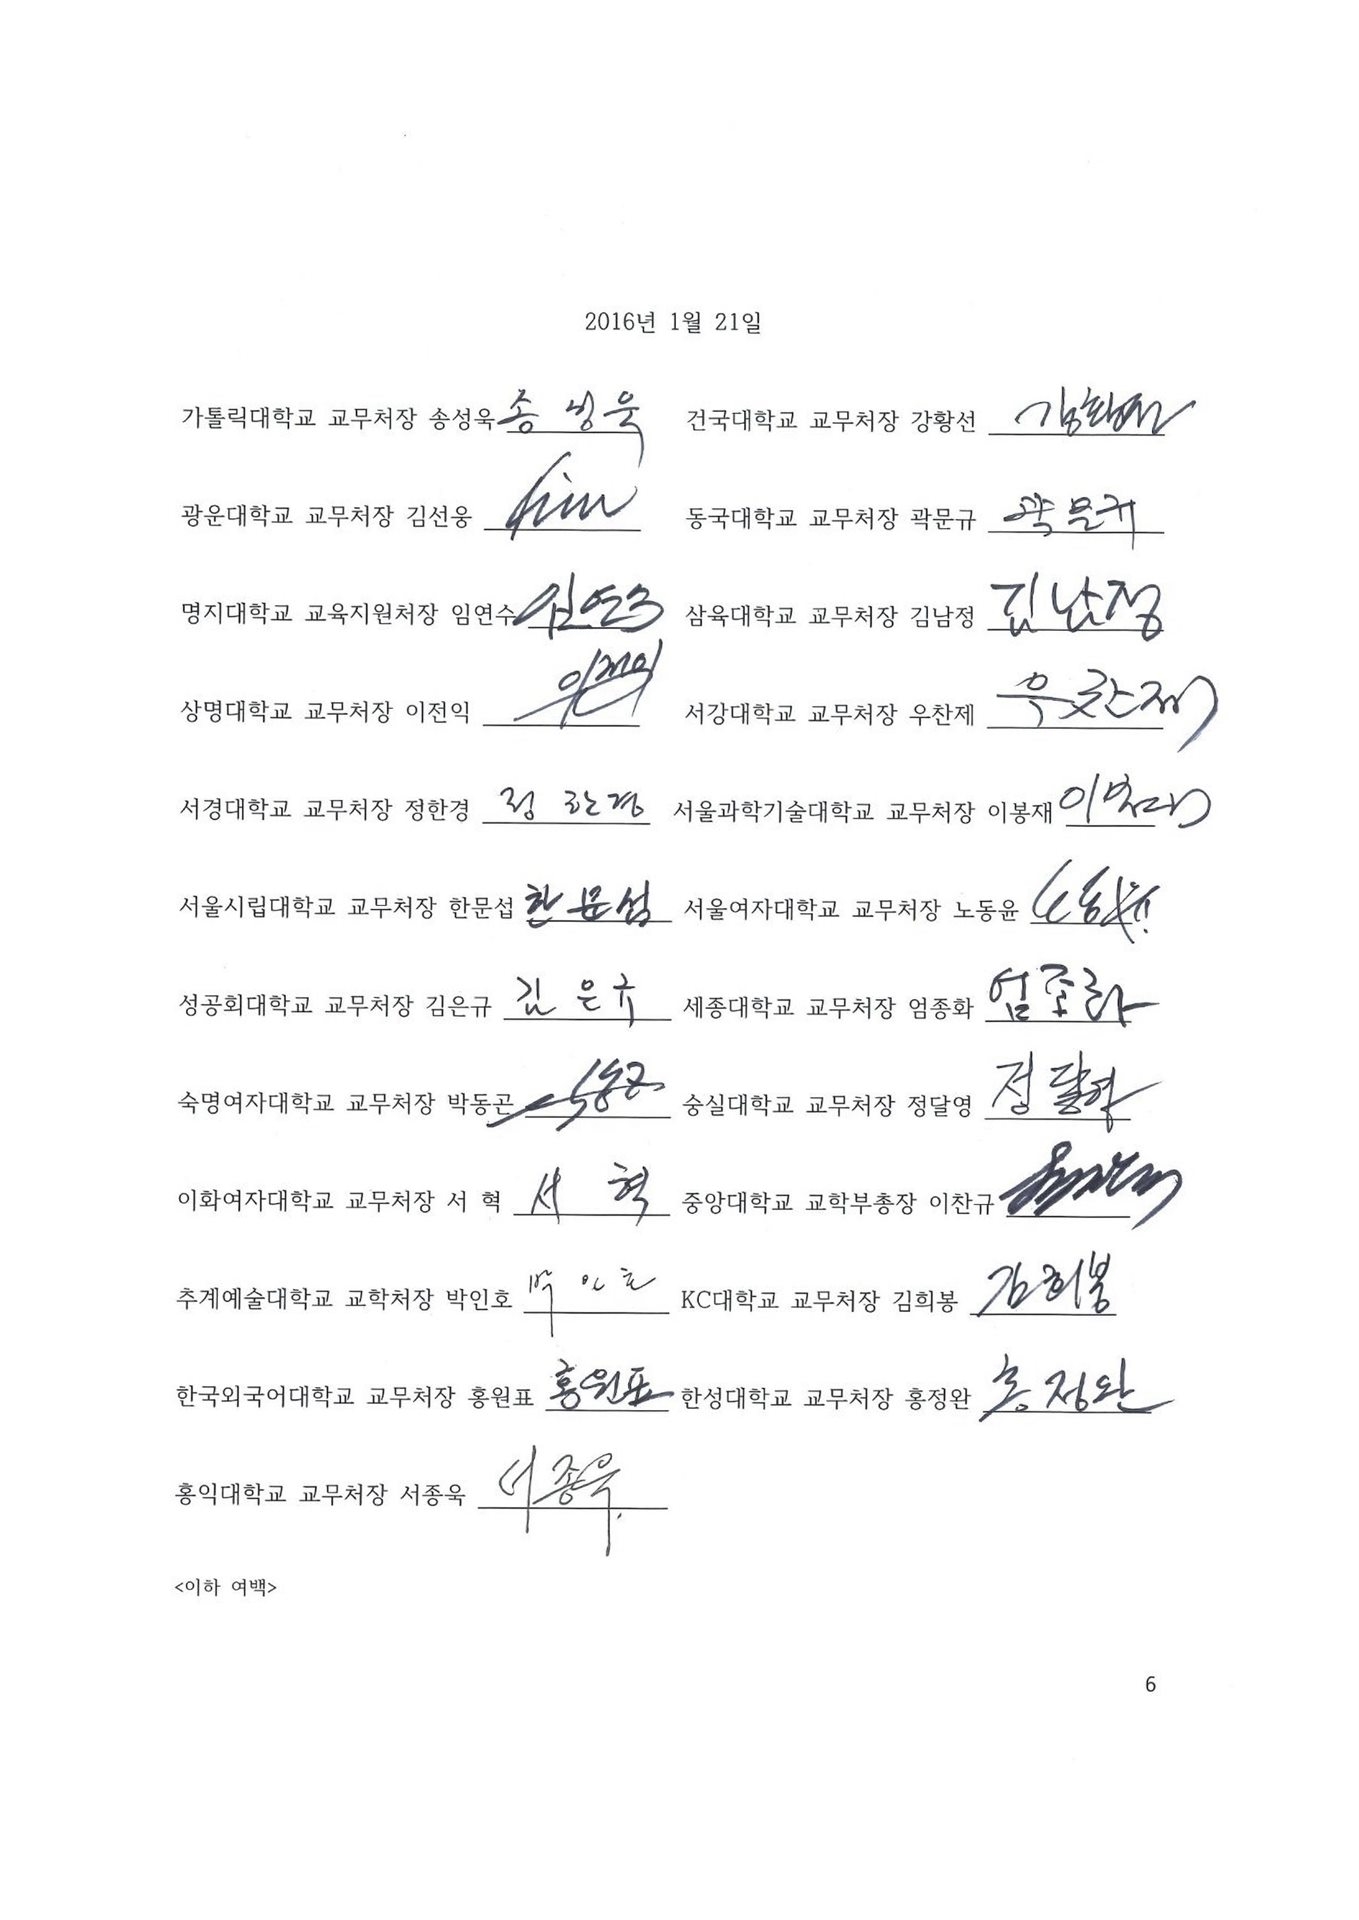 2016년 1월 21일
가톨릭대학교 교무처장 송성욱 송성욱 건국대학교 교무처장 강황선
광운대학교 교무처장 김선웅 Kim 동국대학교 교무처장 곽문규 곽문규
명지대학교 교육지원처장 임연수 임연수 삼육대학교 교무처장 김남정 김남정
상명대학교 교무처장 이전익 서강대학교 교무처장 우찬제 우찬제
서경대학교 교무처장 정한경 정한경 서울과학기술대학교 교무처장 이봉재 이봉재
서울시립대학교 교무처장 한문섭 한문섭 서울여자대학교 교무처장 노동윤
성공회대학교 교무처장 김은규 김은규 세종대학교 교무처장 엄종화 엄종화
숙명여자대학교 교무처장 박동곤 숭실대학교 교무처장 정달영 정달영
이화여자대학교 교무처장 서 혁 서 혁 중앙대학교 교학부총장 이찬규
추계예술대학교 교학처장 박인호 박인호 KC대학교 교무처장 김희봉 김희봉
한국외국어대학교 교무처장 홍원표 홍원표 한성대학교 교무처장 홍정완 홍정완
홍익대학교 교무처장 서종욱 서종욱
<이하 여백>
6